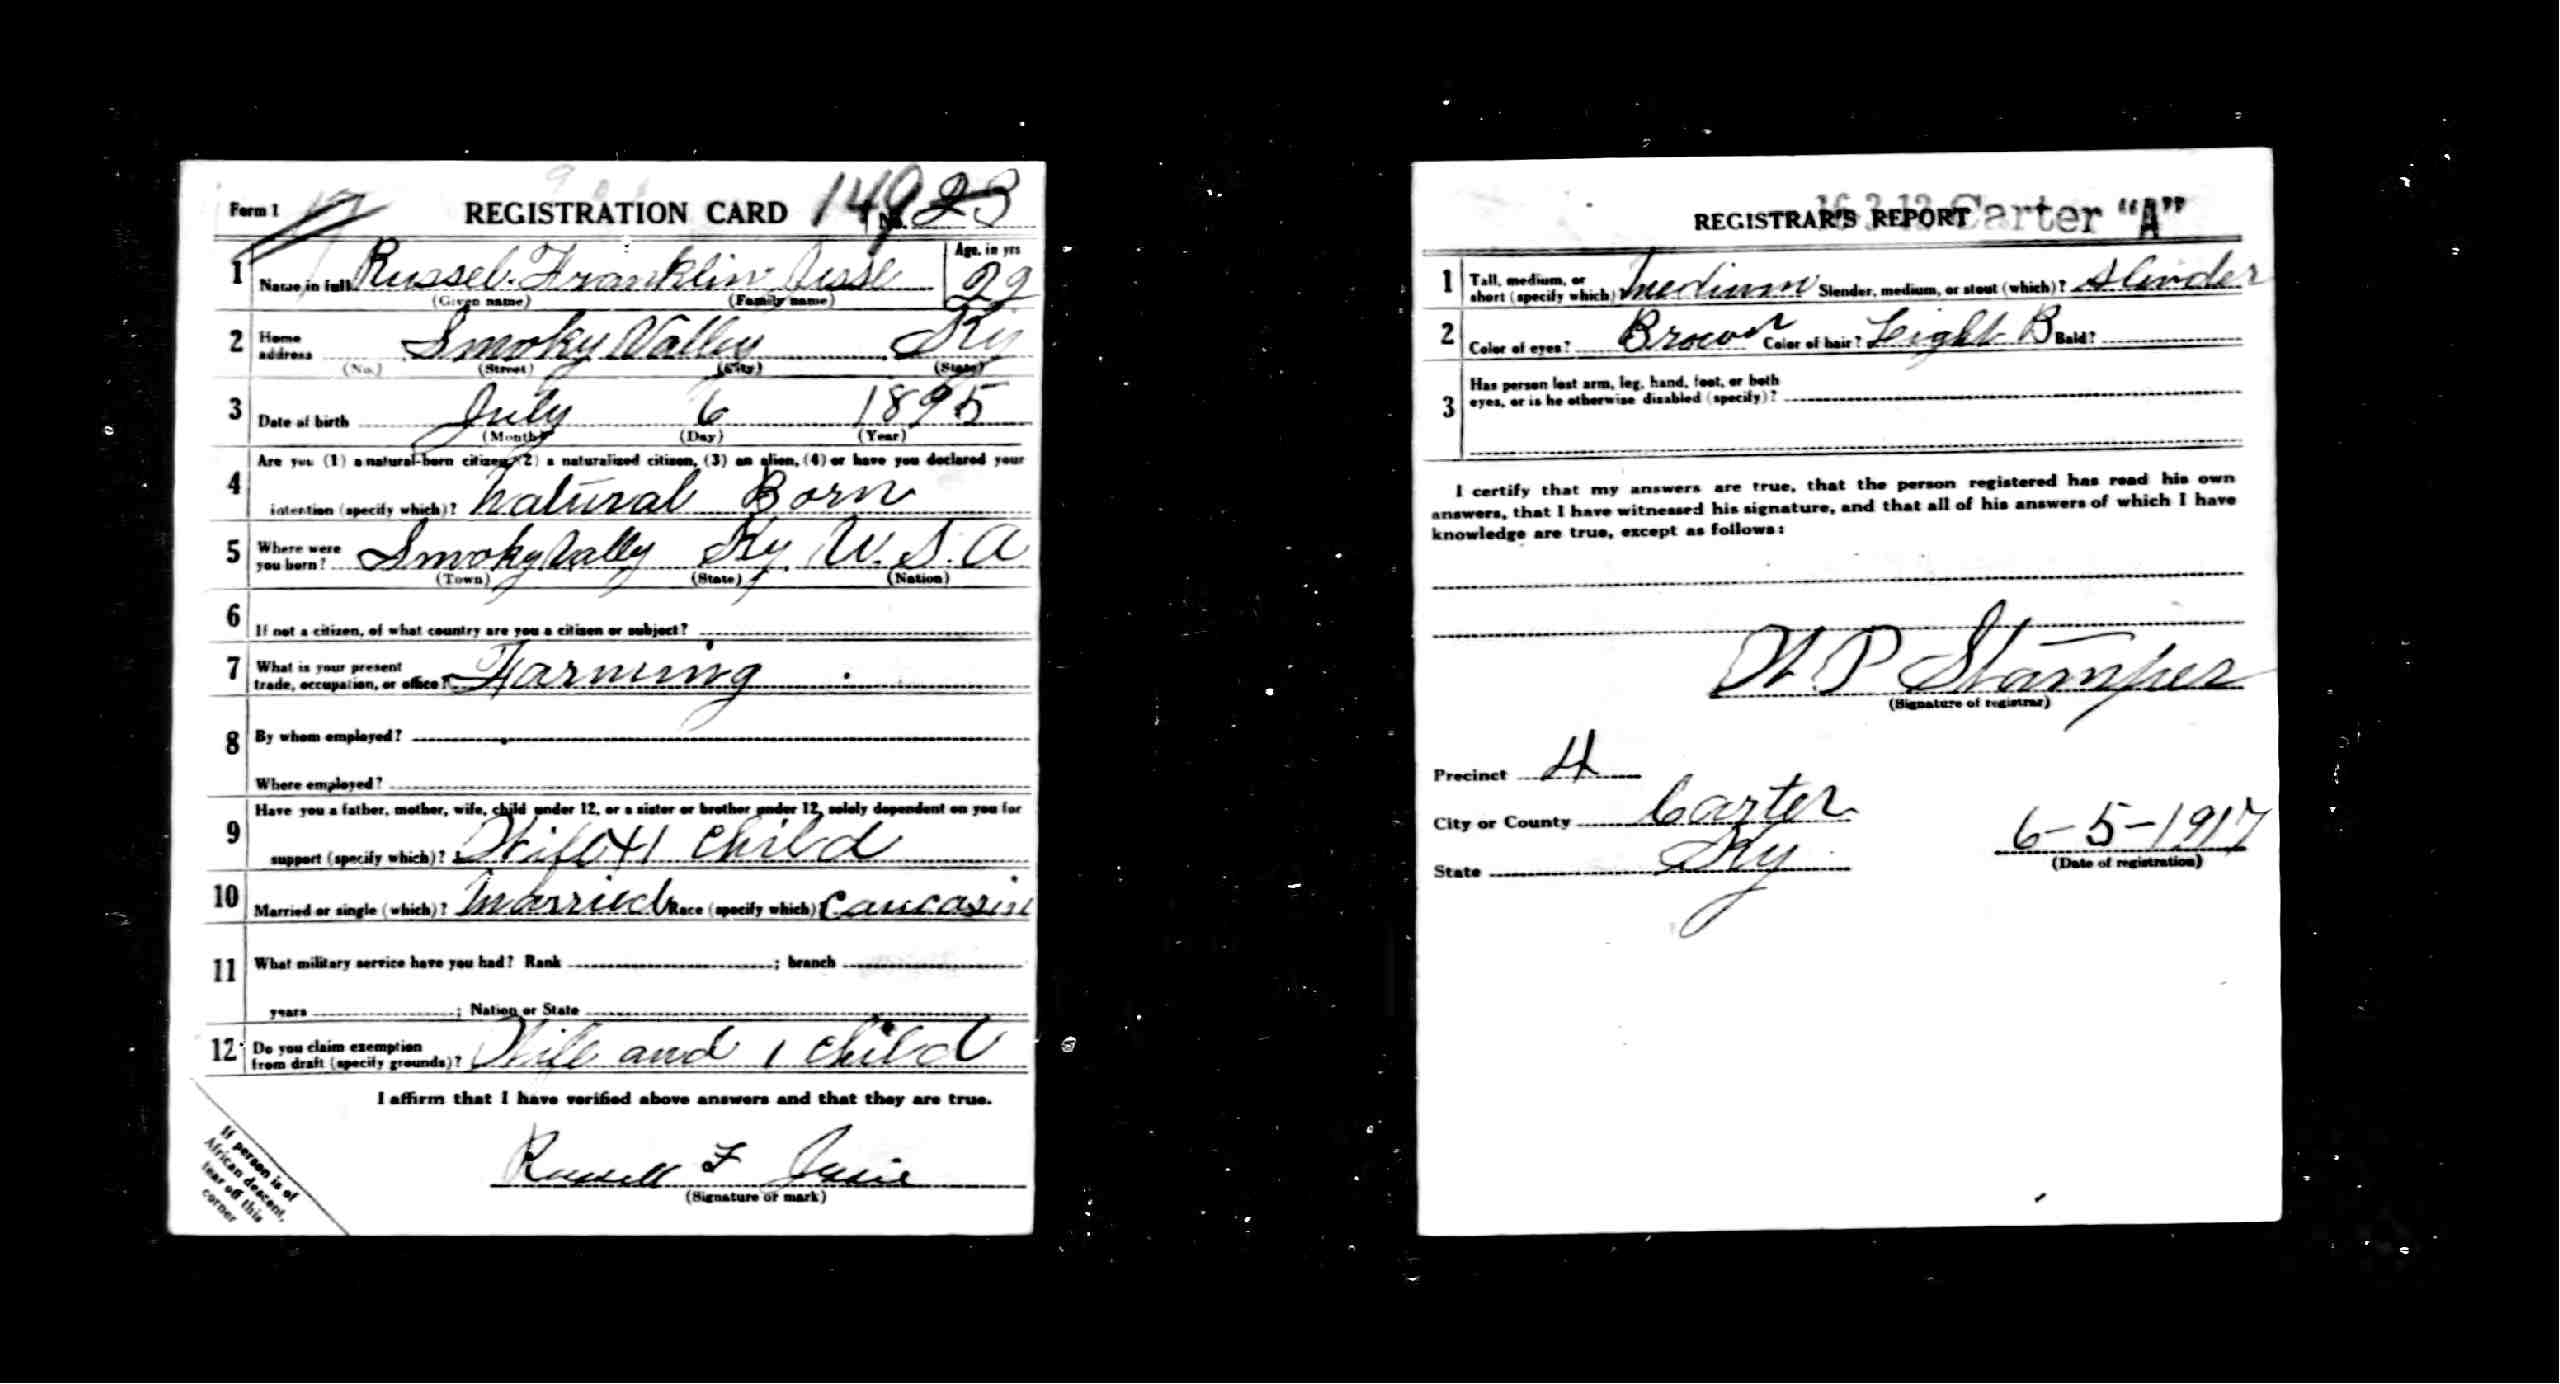 Form 1 REGISTRATION CARD 149 No. 23
1 Name in full Russel Franklin Age, in yrs
(Given name) (Family name) 22
2 Home address Smoky Valley Ky
(No.) (Street) (City) (State)
3 Date of birth July 6 1895
(Month) (Day) (Year)
4 Are you (1) a natural-born citizen, (2) a naturalized citizen, (3) an alien, (4) or have you declared your
intention (specify which)? Natural Born
5 Where were you born? Smoky Vally Ky. U. S. A
(Town) (State) (Nation)
6 If not a citizen, of what country are you a citizen or subject?
7 What is your present
trade, occupation, or office? Farming
8 By whom employed?
Where employed?
9 Have you a father, mother, wife, child under 12, or a sister or brother under 12, solely dependent on you for
support (specify which)? Wife + 1 child
10 Married or single (which)? Married Race (specify which) Caucasin
11 What military service have you had? Rank ; branch
years ; Nation or State
12 Do you claim exemption
from draft (specify grounds)? Wife and 1 child
I affirm that I have verified above answers and that they are true.
Russell F
(Signature or mark)
If person is of
African descent,
tear off this
corner
REGISTRAR'S REPORT 16 3 12 Carter "A"
1 Tall, medium, or
short (specify which)? Medium Slender, medium, or stout (which)? Slinder
2 Color of eyes? Brown Color of hair? Light B Bald?
3 Has person lost arm, leg, hand, foot, or both
eyes, or is he otherwise disabled (specify)?
I certify that my answers are true, that the person registered has read his own
answers, that I have witnessed his signature, and that all of his answers of which I have
knowledge are true, except as follows:
P Stamper
(Signature of registrar)
Precinct 4
City or County Carter
State Ky
6-5-1917
(Date of registration)